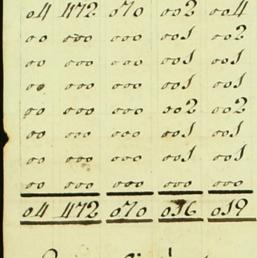 04 472 070 002 004
00 000 000 001 002
00 000 000 001 001
00 000 000 001 001
00 000 000 002 002
00 000 000 001 001
00 000 000 001 001
00 000 000 000 000
04 472 070 016 019